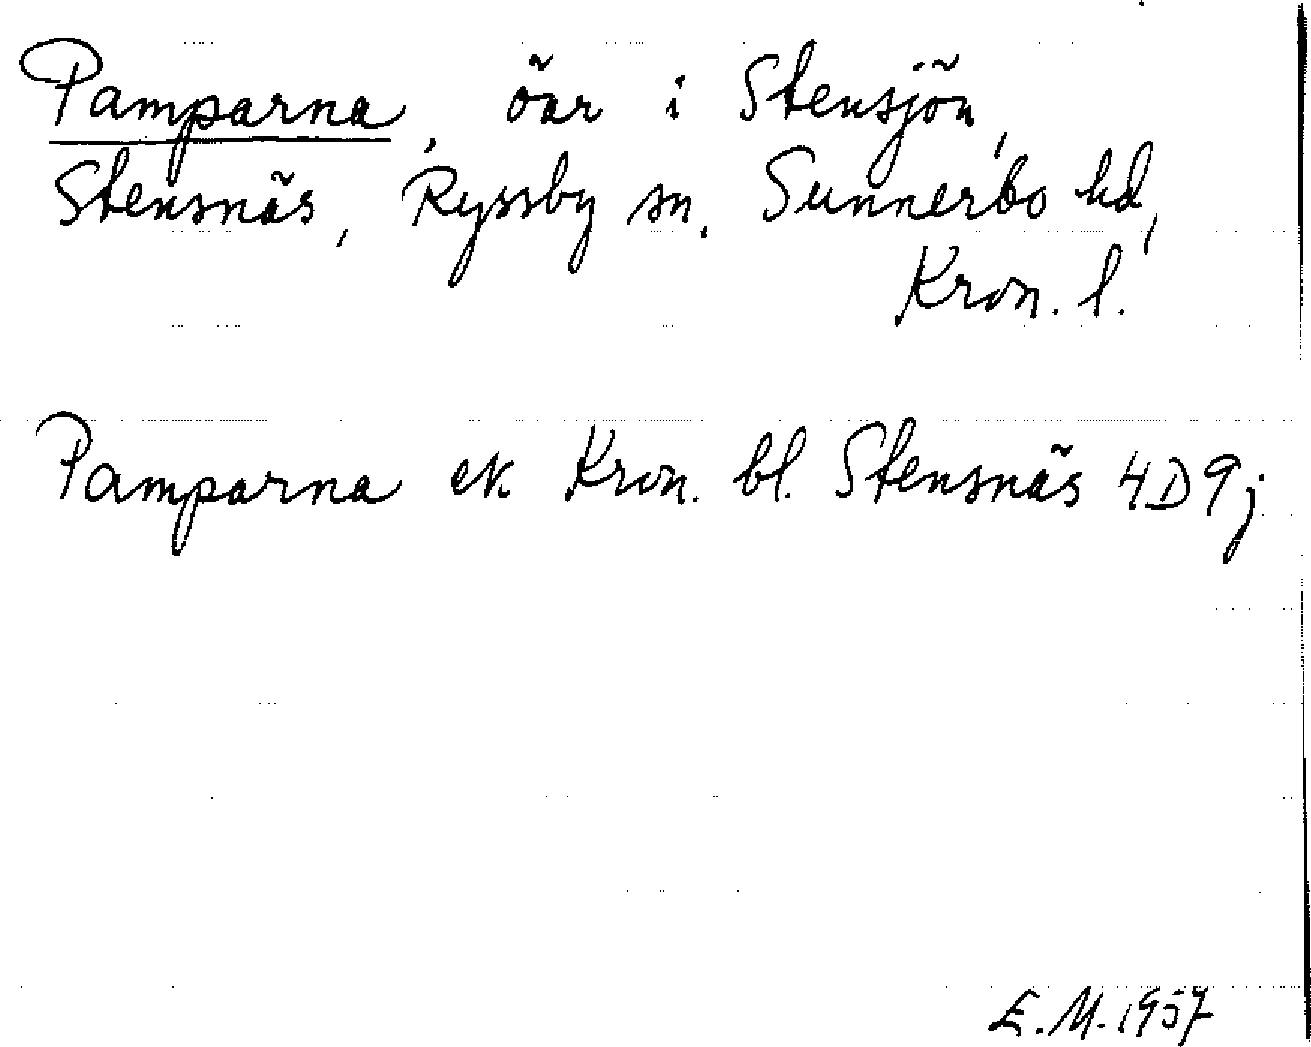 Pamparna, öar i Stensjön,
Stensnäs, Ryssby sn. Sunnerbo hd,
Kron. l.
Pamparna ek Kron. bl. Stensnäs 4D9j
E.M. 1957